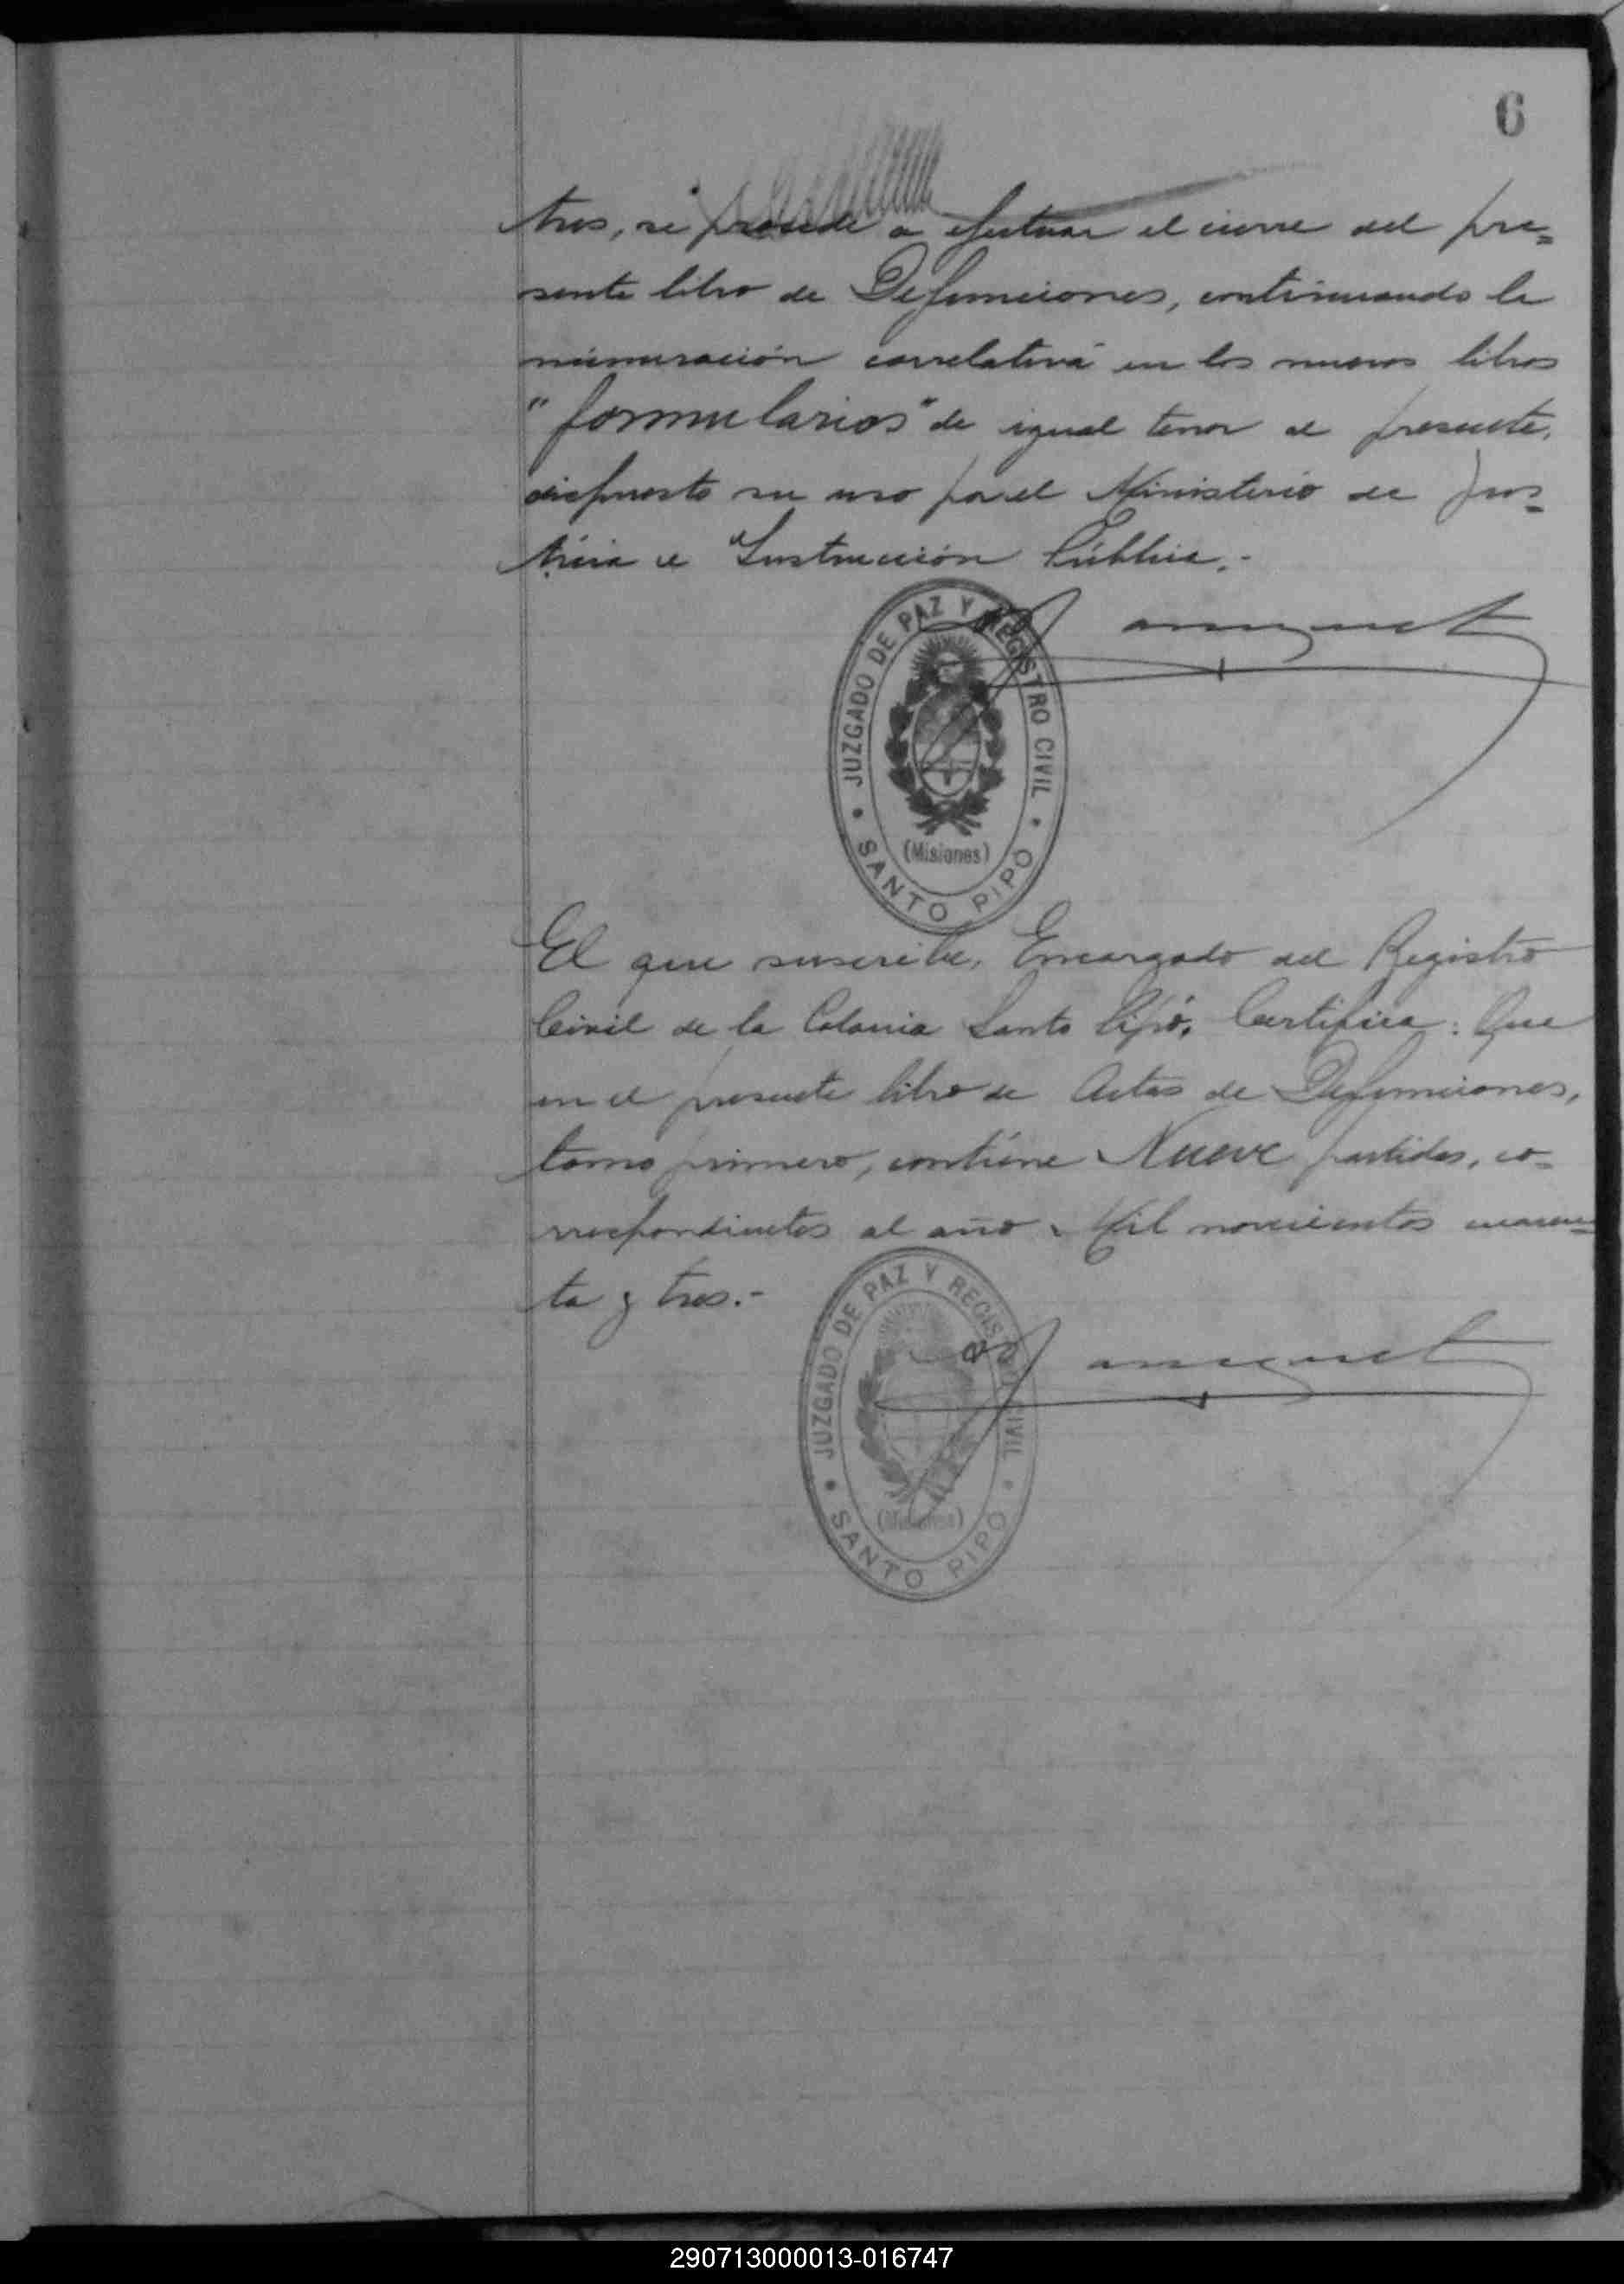 6
tres, se procede a efectuar el cierre del pre=
sente libro de Defunciones, continuando la
númeración correlativa en los nuevos libros
"formularios" de igual tenor al presente,
dispuesto su uso por el Ministerio de Jus=
ticia e Instrucción Pública.-
JUZGADO DE PAZ Y REGISTRO CIVIL
(Misiones)
SANTO PIPÓ
El que suscribe, Encargado del Registro
Civil de la Colonia Santo Pipó, Certifica: Que
en el presente libro de Actas de Defunciones,
tomo primero, contiene Nueve partidas, co=
rrespondientes al año Mil novecientos cuaren=
ta y tres.-
JUZGADO DE PAZ Y REGISTRO CIVIL
(Misiones)
SANTO PIPÓ
290713000013-016747